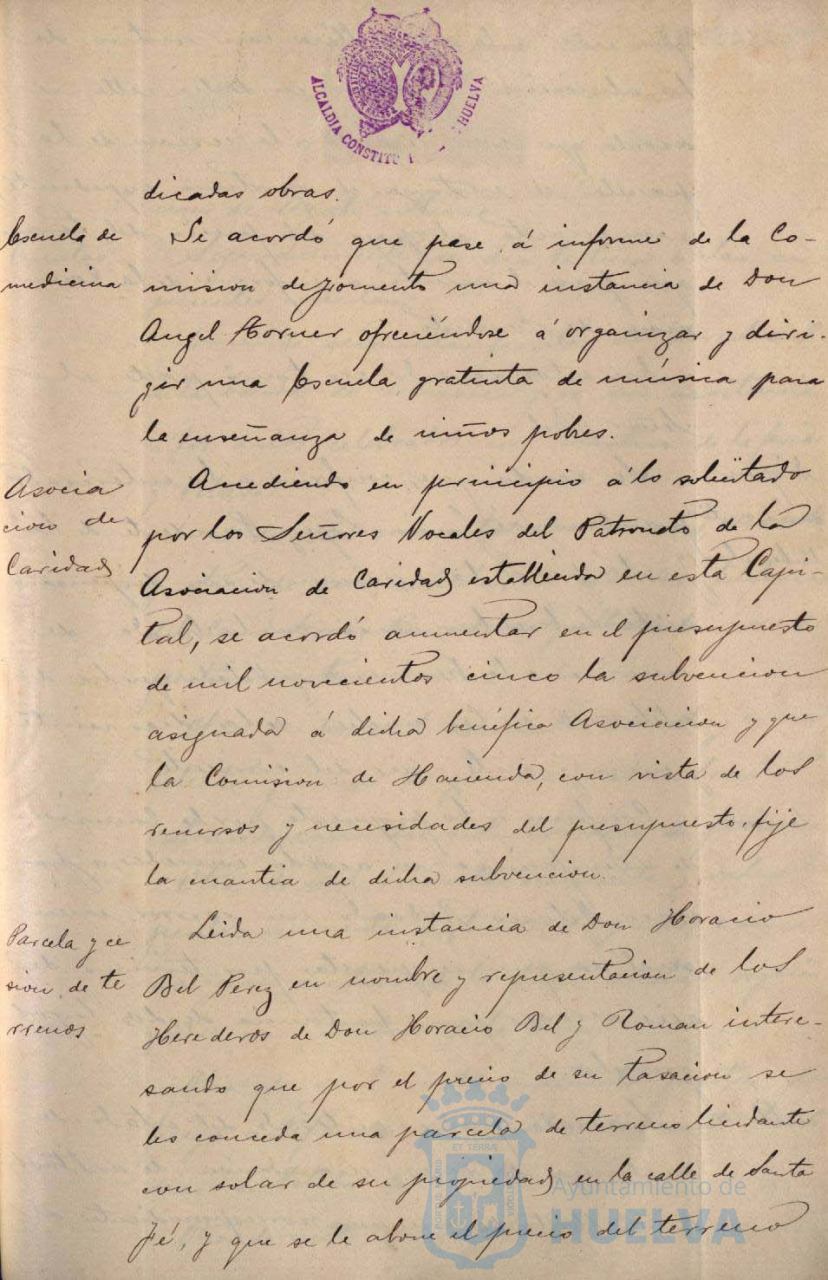 ALCALDIA CONSTITU HUELVA
dicadas obras.
Escuela de
medicina
Se acordó que pase á informe de la Co-
mision de fomento una instancia de Don
Angel Horner ofreciéndose á organizar y diri-
gir una Escuela gratuita de música para
la enseñanza de niños pobres.
Asocia
cion de
Caridad
Accediendo en principio á lo solicitado
por los Señores Vocales del Patronato de la
Asociacion de Caridad establecida en esta Capi-
tal, se acordó aumentar en el presupuesto
de mil novecientos cinco la subvencion
asignada á dicha benéfica Asociacion y que
la Comision de Hacienda, con vista de los
recursos y necesidades del presupuesto, fije
la cuantia de dicha subvencion.
Parcela y ce
sion de te
rrenos
Leida una instancia de Don Horacio
Bel Perez en nombre y representacion de los
Herederos de Don Horacio Bel y Roman intere-
sando que por el precio de su tasacion se
les conceda una parcela de terreno lindante
con solar de su propiedad en la calle de Santa
Fé, y que se le abone el precio del terreno
Ayuntamiento de
HUELVA